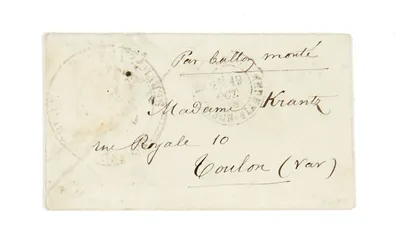 Par ballon monté
Madame Krantz
rue Royale 10
Toulon (Var)